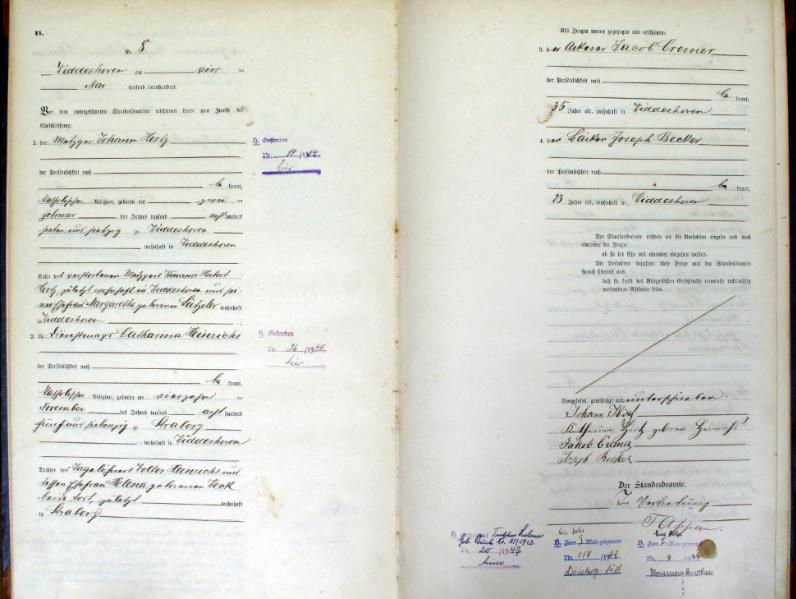 B.
Nr. 5
Widdeshoven am vier ten
Mai tausend neunhundert
Vor dem unterzeichneten Standesbeamten erschienen heute zum Zwecke der
Eheschließung:
1. der Metzger Johann Hertz
der Persönlichkeit nach
be kannt,
katholischer Religion, geboren am zwei ten
Februar des Jahres tausend acht hundert
zu Widdeshoven
, wohnhaft in Widdeshoven
Sohn des verstorbenen Metzgers Hubert
Hertz, zuletzt wohnhaft in Widdeshoven und sei
ner Ehefrau Margaretha geborenen wohnhaft
in Widdeshoven
2. die Dienstmagd Catharina Heinrichs
der Persönlichkeit nach
be kannt,
katholischer Religion, geboren am vierzehn ten
November des Jahres tausend acht hundert
fünf und siebenzig zu Straberg
, wohnhaft in Widdeshoven
Tochter des Tagelöhners Heinrichs und
dessen Ehefrau Helena geborenen Heck
beide tot, zuletzt wohnhaft
in Straberg
H. Gestorben
Nr.
hier
H. Gestorben
Nr. 26
hier
Als Zeugen waren zugezogen und erschienen:
3. der Ackerer Jacob Cremer
der Persönlichkeit nach
be kannt,
35 Jahre alt, wohnhaft in Widdeshoven
4. der Bäcker Joseph Becker
der Persönlichkeit nach
be kannt,
23 Jahre alt, wohnhaft in Widdeshoven
Der Standesbeamte richtete an die Verlobten einzeln und nach
einander die Frage:
ob sie die Ehe mit einander eingehen wollen.
Die Verlobten bejahten diese Frage und der Standesbeamte
sprach hierauf aus,
daß sie kraft des Bürgerlichen Gesetzbuchs nunmehr rechtmäßig
verbundene Eheleute seien.
Vorgelesen, genehmigt und unterschrieben
Johann Hertz
Katharina Hertz geborene Heinrichs
Jakob Cremer
Joseph Becker
Der Standesbeamte.
In Vertretung
Nr. 20
hier
Nr.
Duisburg Süd
Nr. 8